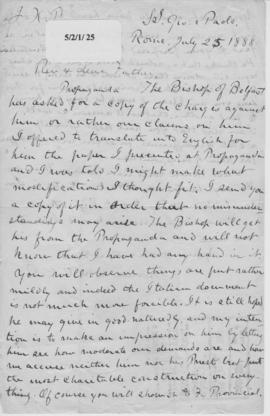 J. K. P.
SS. Gio. e Paolo.
5/2/1/25
Rome, July 25 1888
Rev & dear Father,
Propaganda The Bishop of Belfast
has asked for a copy of the charges against
him or rather our claims on him
I offered to translate into English for
him the paper I presented at Propaganda
and I was told I might make what
modifications I thought fit. I send you
a copy of it in order that no misunder
standings may arise. The Bishop will get
his from the Propaganda and will not
know that I have had any hand in it.
You will observe things are put rather
mildly and indeed the Italian document
is not much more forcible. It is still hoped
he may give in good naturedly and my inten
tion is to make an impression on him by letting
him see how moderate our demands are and how
we accuse neither him nor his Priests but put
the most charitable construction on every
thing. Of course you will show it F. Provincial.